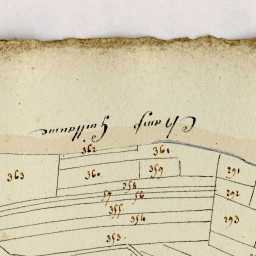 Champ Guillaume
362 361
363 360 359 291
358
57 56 292
355
354 293
353